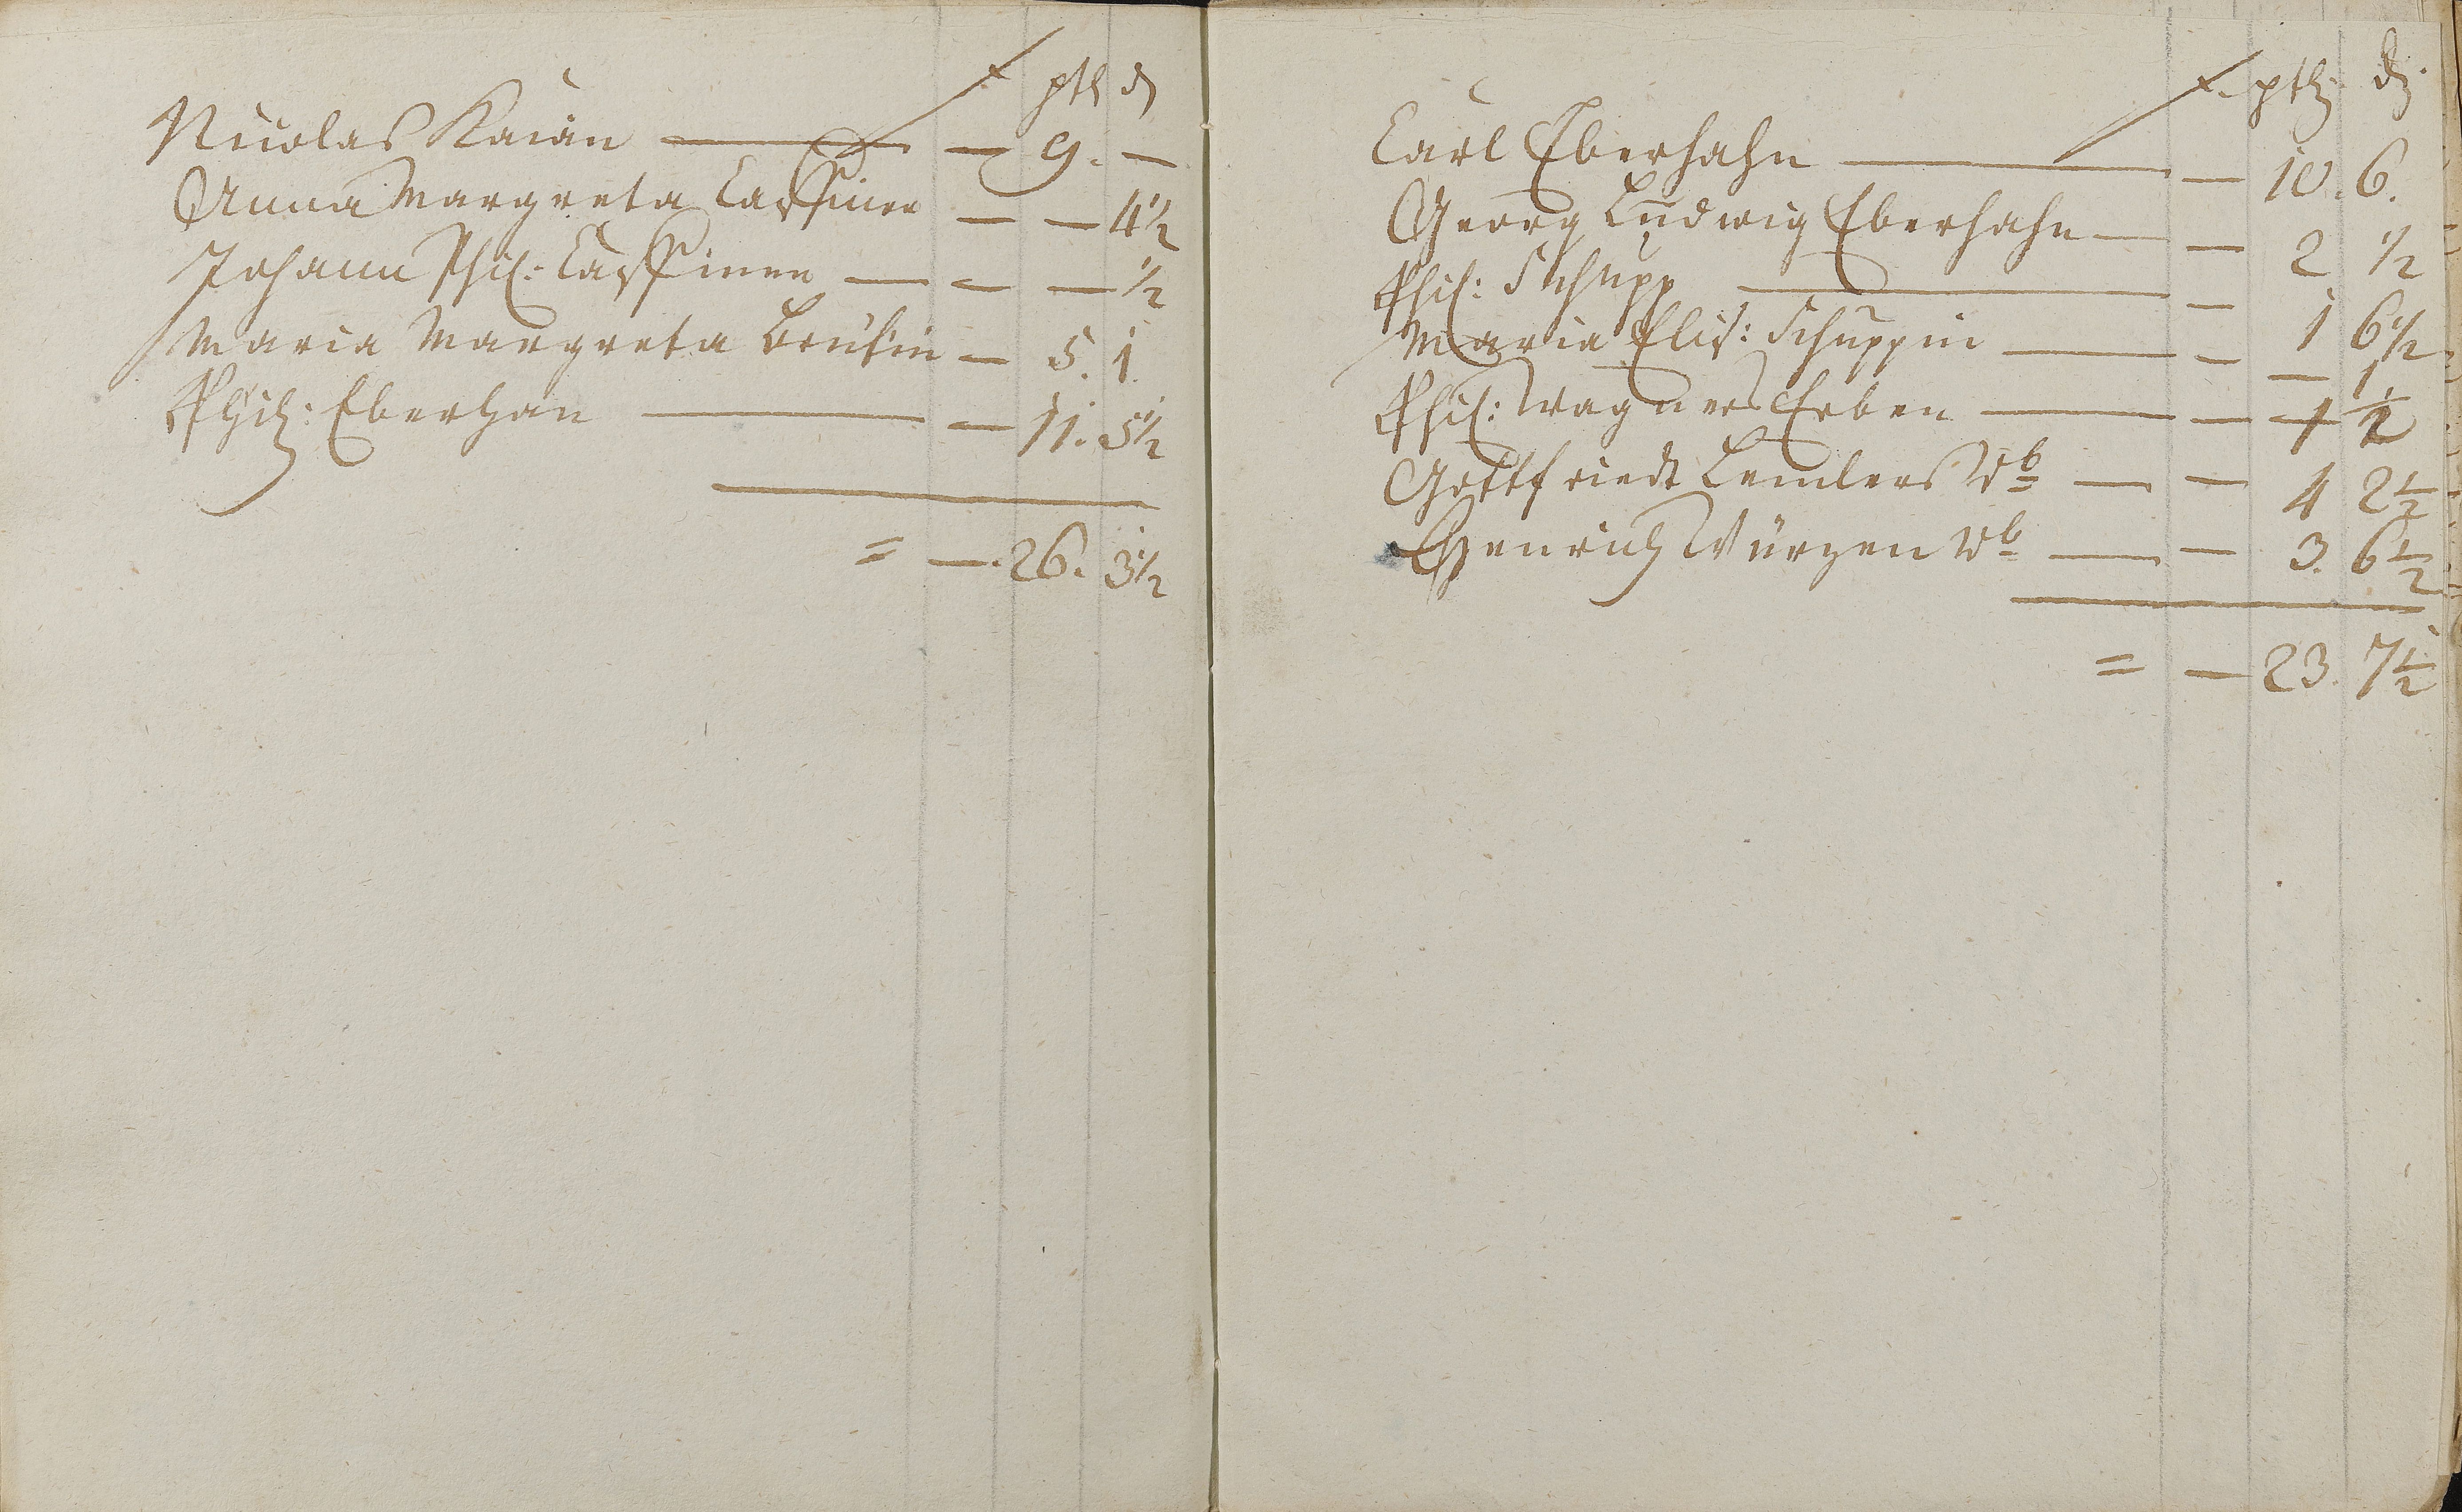 f ptz d
Nicolas Kaian — — 9. —
Anna Margreta Cassinen — — 4 1/2
Johann Phil: Cassinen — — — 1/2
Maria Margreta — 5. 1.
Phil: Eberhan — — 11. 5 1/2
= — 26. 3 1/2
f. ptz. d.
Carl Eberhahn — — 10. 6.
Georg Ludwig Eberhahn — — 2 1/2
Phil: Schupp — — 1 6 1/2
Maria Elis: Schuppin — — — 1
Phil: Wagners Erben — — 1 1/2
Gottfriedt Lemlers Wb — — 4 2 1/2
Henrich Würzen Wb — — 3. 6 1/2
= — 23. 7 1/2